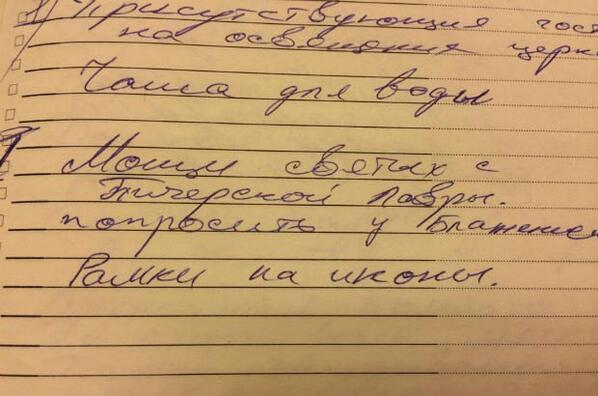 Присутствующия гост
на освящения церк
Чаша для воды
Мощи святых с
Пичерской Лавры.
попросить у Блаженне
Рамки на иконы.